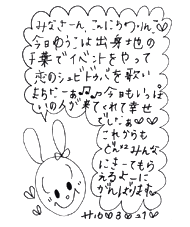 みなさーん、こんにちわ。りん♡
今日ゆうこは出身地の
千葉でイベントをやって
恋のシュビドゥバを歌い
ましたーぁ♫♫今日もいっぱ
いの人が来てくれて幸せ
でしたぁ♡
これからも
どんどんみんな
にさーてもら
えるよーに
がんばりますね。
H16♡8♡21♡